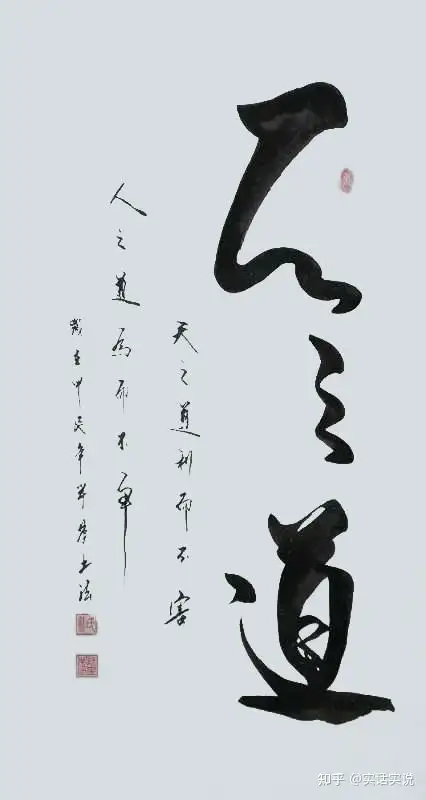 天之道
天之道利而不害
人之道為而不争
歲在甲辰年
知乎 @实话实说